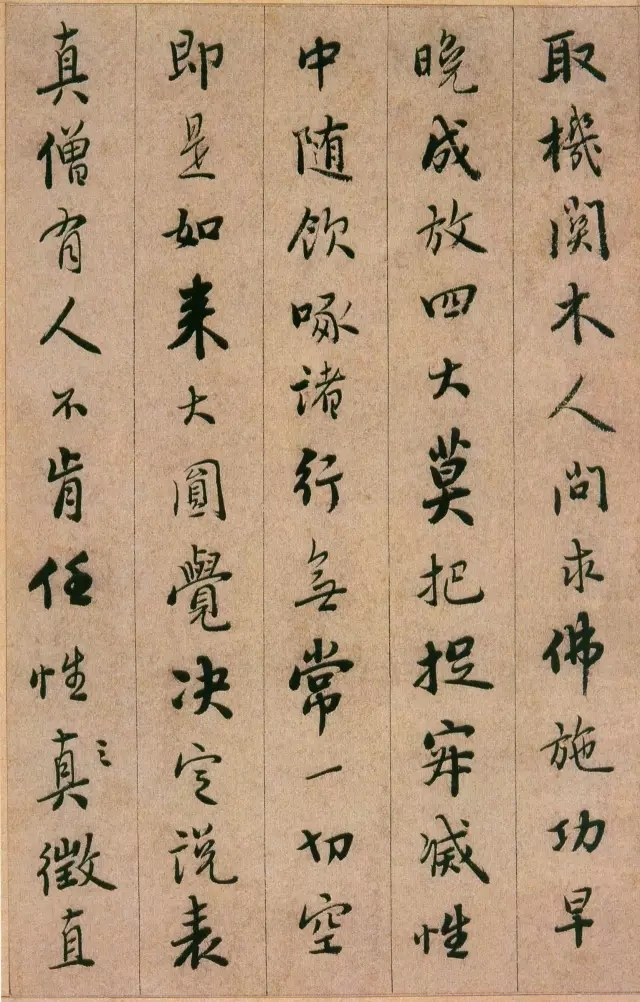 取機関木人問求佛施功早
晚成放四大莫把捉寂滅性
中随飲啄諸行無常一切空
即是如来大圓覺决定説表
真僧有人不肯任性真〻徵直